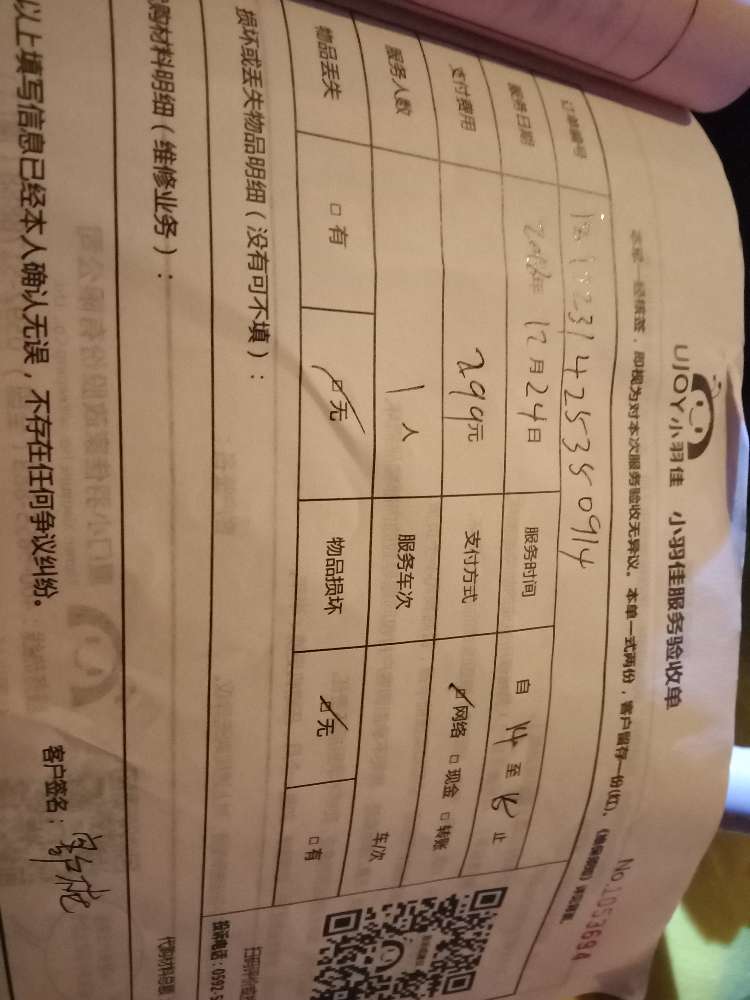 UJOY小羽佳 小羽佳服务验收单
No.1053694
本单一经核签，即视为对本次服务验收无异议。本单一式两份，客户留存一份(红)，
订单编号
服务日期 12月24日 服务时间 自 14 至 18 止
支付费用 299元 支付方式 网络 □现金 □转账
服务人数 1人 服务车次 车/次
物品丢失 □有 □无 物品损坏 □无 □有
损坏或丢失物品明细（没有可不填）：
购材料明细（维修业务）：
代购材料总额
以上填写信息已经本人确认无误，不存在任何争议纠纷。
客户签名：
投诉电话：0592-5